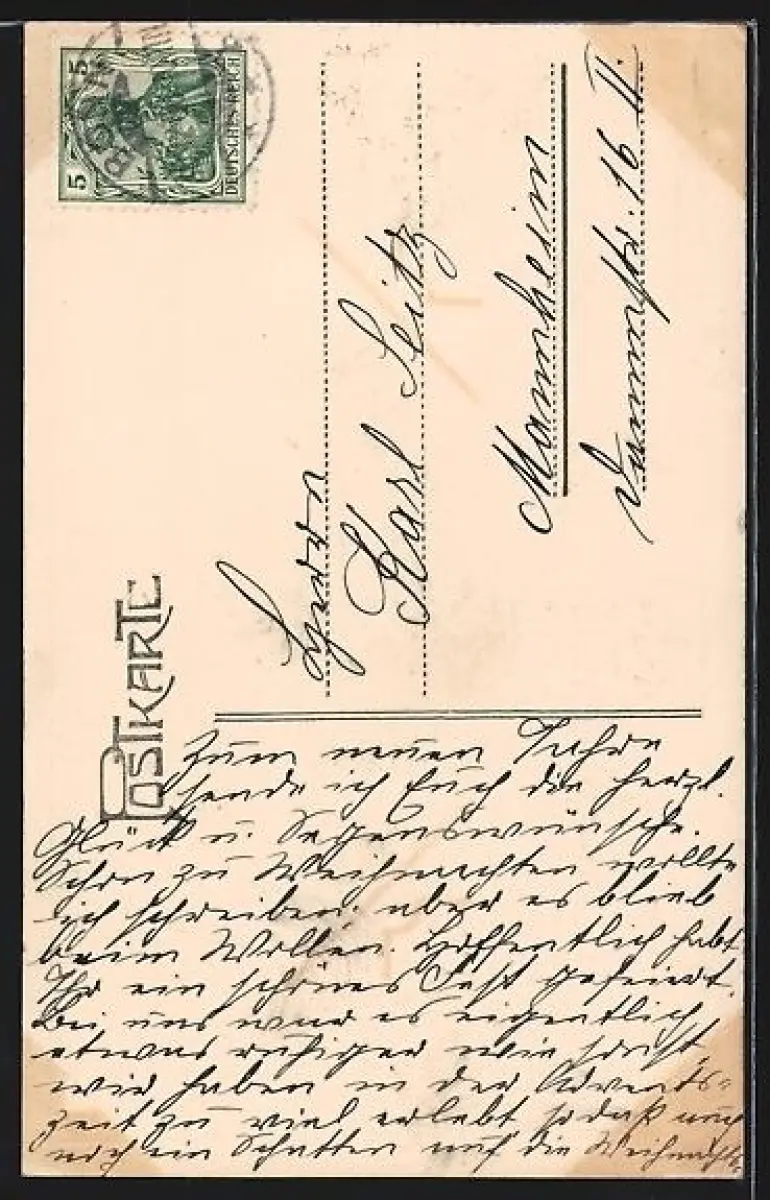 POSTKARTE
DEUTSCHES REICH
5 5
BONN
Herrn
Karl Seitz
Mannheim
Dammstr. 16 II.
Zum neuen Jahre
sende ich Euch die herzl.
Glück u. Segenswünsche.
Schon zu Weihnachten wollte
ich schreiben, aber es blieb
beim Wollen. Hoffentlich habt
Ihr ein schönes Fest gefeiert.
Bei uns war es eigentlich
etwas ruhiger wie sonst,
wir haben in der Advents-
zeit zu viel erlebt, sodaß auch
noch ein Schatten auf die Weihnachts-